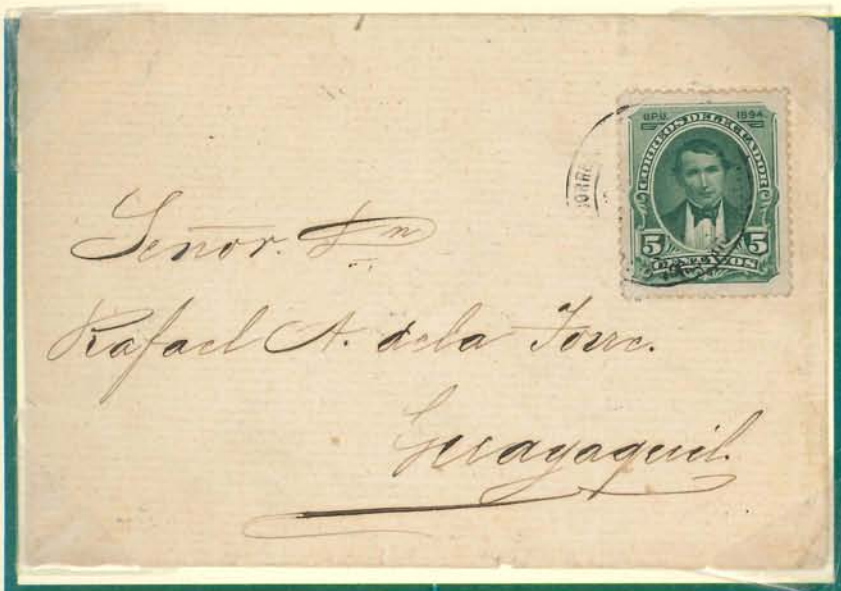 U.P.U. 1894
CORREOS DEL ECUADOR
5 5
CENTAVOS
Señor. Dn
Rafael A. de la Torre.
Guayaquil.